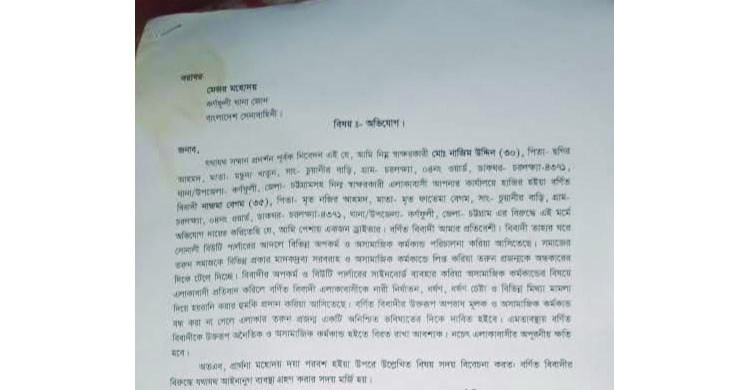 বরাবর
মেজর মহোদয়
কর্ণফুলী থানা জোন
বাংলাদেশ সেনাবাহিনী।
বিষয় ঃ- অভিযোগ।
জনাব,
যথাযথ সম্মান প্রদর্শন পূর্বক নিবেদন এই যে, আমি নিম্ন স্বাক্ষরকারী মোঃ নাজিম উদ্দিন (৩০), পিতা- ছবির
আহমদ, মাতা- যমুনা খাতুন, সাং- চুয়ানীর বাড়ি, গ্রাম- চরলক্ষ্যা, ০৪নং ওয়ার্ড, ডাকঘর- চরলক্ষ্যা-৪৩৭১,
থানা/উপজেলা- কর্ণফুলী, জেলা- চট্টগ্রামসহ নিম্ন স্বাক্ষরকারী এলাকাবাসী আপনার কার্যালয়ে হাজির হইয়া বর্ণিত
বিবাদী নাজমা বেগম (৩৫), পিতা- মৃত নজির আহমদ, মাতা- মৃত ফাতেমা বেগম, সাং- চুয়ানীর বাড়ি, গ্রাম-
চরলক্ষ্যা, ০৪নং ওয়ার্ড, ডাকঘর- চরলক্ষ্যা-৪৩৭১, থানা/উপজেলা- কর্ণফুলী, জেলা- চট্টগ্রাম এর বিরুদ্ধে এই মর্মে
অভিযোগ দায়ের করিতেছি যে, আমি পেশায় একজন ড্রাইভার। বর্ণিত বিবাদী আমার প্রতিবেশী। বিবাদী তাহার ঘরে
সোনালী বিউটি পার্লারের আদলে বিভিন্ন অপকর্ম ও অসামাজিক কর্মকান্ড পরিচালনা করিয়া আসিতেছে। সমাজের
তরুন সমাজকে বিভিন্ন প্রকার মাদকদ্রব্য সরবরাহ ও অসামাজিক কর্মকান্ডে লিপ্ত করিয়া তরুন প্রজন্মকে অন্ধকারের
দিকে ঠেলে দিচ্ছে। বিবাদীর অপকর্ম ও বিউটি পার্লারের সাইনবোর্ড ব্যবহার করিয়া অসামাজিক কর্মকান্ডের বিষয়ে
এলাকাবাসী প্রতিবাদ করিলে বর্ণিত বিবাদী এলাকাবাসীকে নারী নির্যাতন, ধর্ষণ, ধর্ষণ চেষ্টা ও বিভিন্ন মিথ্যা মামলা
দিয়ে হয়রানি করার হুমকি প্রদান করিয়া আসিতেছে। বর্ণিত বিবাদীর উক্তরূপ অপরাধ মূলক ও অসামাজিক কর্মকান্ড
বন্ধ করা না গেলে এলাকার তরুন প্রজন্ম একটি অনিশ্চিত ভবিষ্যতের দিকে ধাবিত হইবে। এমতাবস্থায় বর্ণিত
বিবাদীকে উক্তরূপ অনৈতিক ও অসামাজিক কর্মকান্ড হইতে বিরত রাখা আবশ্যক। নচেৎ এলাকাবাসীর অপূরনীয় ক্ষতি
হবে।
অতএব, প্রার্থনা মহোদয় দয়া পরবশ হইয়া উপরে উল্লেখিত বিষয় সদয় বিবেচনা করতঃ বর্ণিত বিবাদীর
বিরুদ্ধে যথাযথ আইনানুগ ব্যবস্থা গ্রহণ করার সদয় মর্জি হয়।